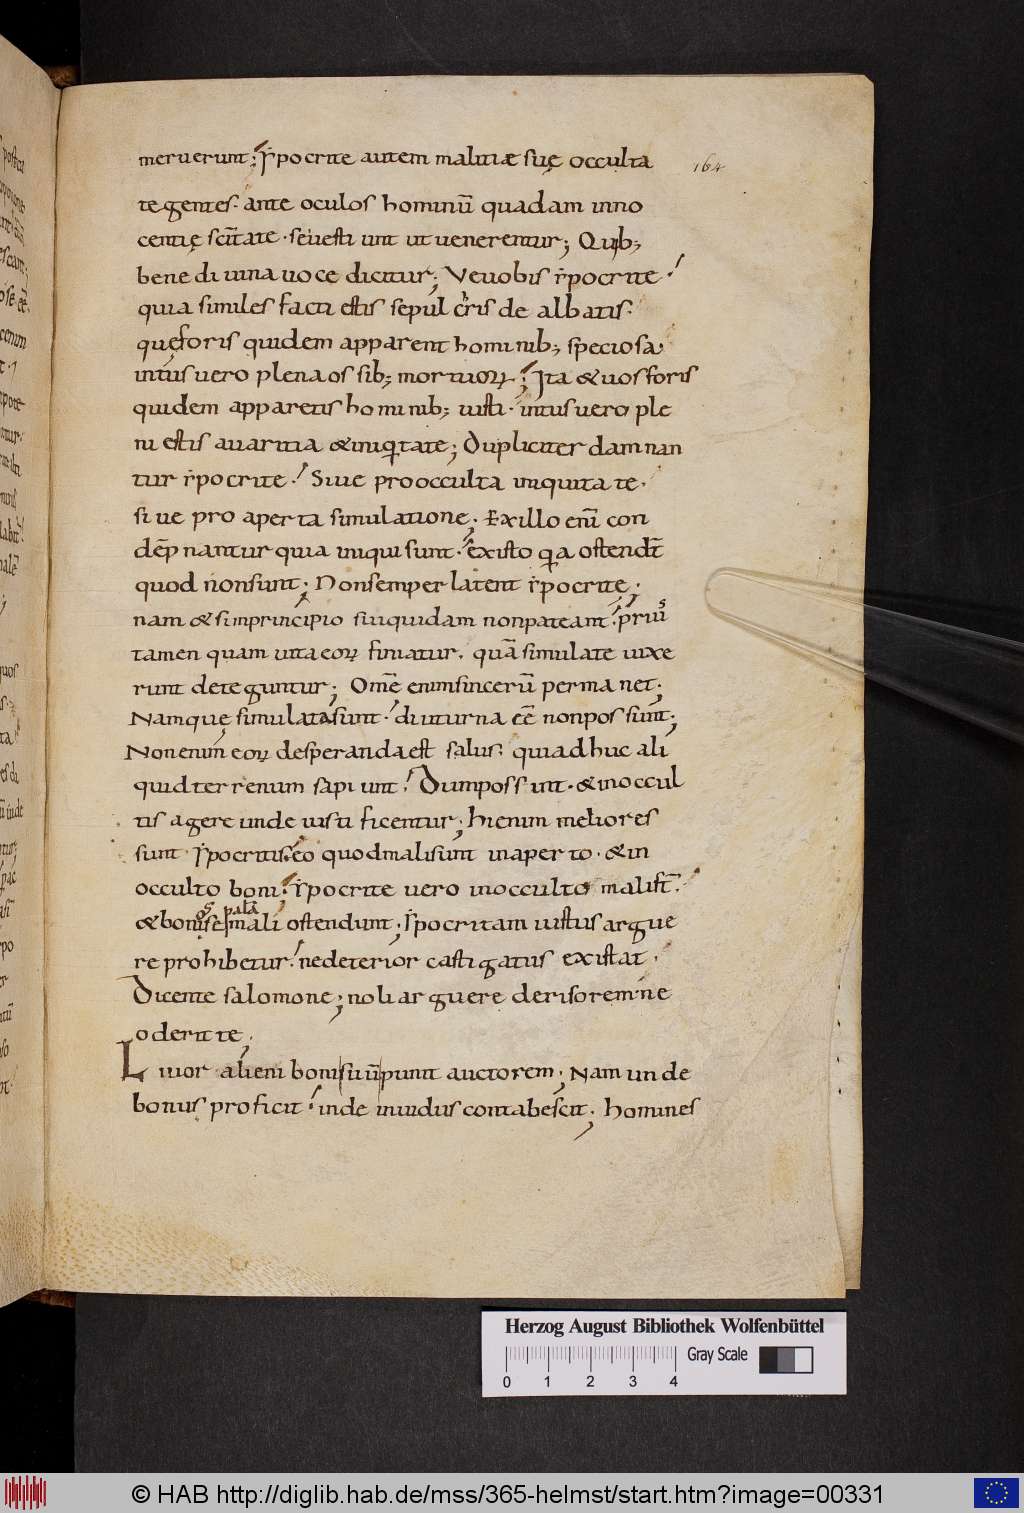 meruerunt; ẏpocrite autem malitiæ suę occulta
164
tegentes· ante oculos hominū quadam inno
centię sc̄itate· se uesti unt ut uenerentur; Quib;
bene diuina uoce dicitur; Ve uobis ẏpocrite!
quia similes facti estis sepulcris de albatis·
quę foris quidem apparent hominib; speciosa
intus uero plena ossib; mortuoꝝ; Ita & uos foris
quidem apparetis hominib; iusti· intus uero ple
ni estis auaritia & iniqitate; Dupliciter damnan
tur ẏpocrite· Siue pro occulta iniquitate·
siue pro aperta simulatione; Ex illo enī con
dēpnantur quia iniqui sunt· ex isto qa ostendt̄
quod non sunt; Non semper latent ẏpocrite;
nam & si in principio sui quidam non pateant· priusꝗ̄
tamen quam uita eoꝝ finiatur· quā simulate uixe
runt deteguntur; Om̄e enim sincerū permanet;
Nam quę simulata sunt· diuturna eē non possunt;
Non enim eoꝝ desperanda est salus· qui adhuc ali
quid terrenum sapiunt· Dum possint· & in occul
tis agere unde iustificentur; hi enim meliores
sunt ẏpocritis· eo quod mali sunt in aperto· & in
occulto boni; ẏpocrite uero in occulto mali st̄·
os palā
& boni se mali ostendunt; ẏpocritam iustus argue
re prohibetur· ne deterior castigatus existat·
Dicente salomone; noli arguere derisorem· ne
oderit te;
Liuor alieni boni suū punit auctorem; Nam unde
bonus proficit· inde inuidus contabescit; homines
Herzog August Bibliothek Wolfenbüttel
Gray Scale
0 1 2 3 4
© HAB http://diglib.hab.de/mss/365-helmst/start.htm?image=00331